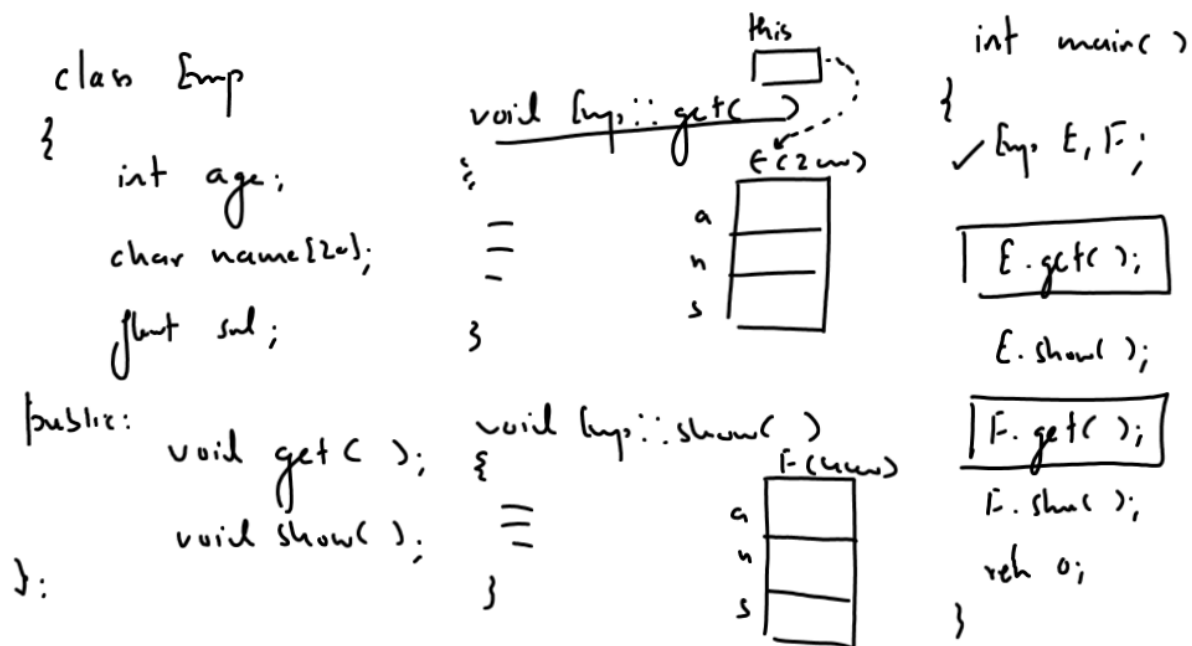 class Emp
{
int age;
char name[20];
float sal;
public:
void get( );
void show( );
};
this
void Emp::get( )
{
E(2000)
a
n
s
}
void Emp::show( )
{
F(4000)
a
n
s
}
int main( )
{
Emp E, F;
E.get( );
E.show( );
F.get( );
F.show( );
0;
}